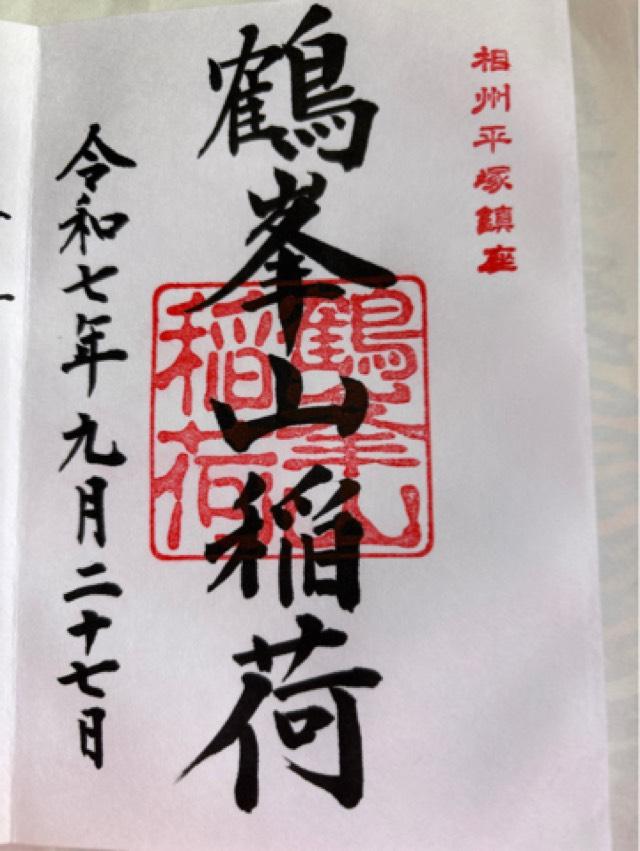 相州平塚鎮座
鶴峯山稲荷
鶴峯山
稲荷
令和七年九月二十七日